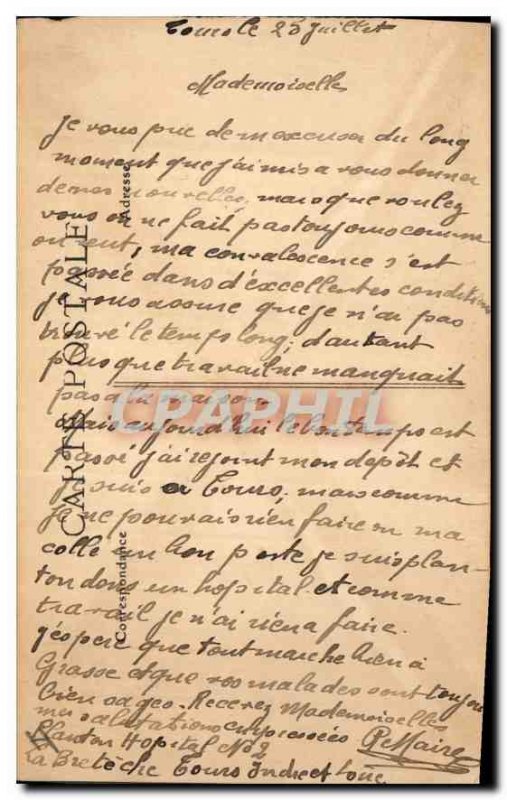 Tours le 25 Juillet
Mademoiselle
Je vous prie de m excuser du long
moment que j'ai mis a vous donner
de mes nouvelles, mais que voulez
vous on ne fait pas toujours comme
on veut, ma convalescence s'est
passée dans d'éxcellentes conditions
je vous assure que je n'ai pas
trouvé le temps long; d'autant
plus que travail ne manquait
pas a la maison
Mais aujourd'hui le bon temps est
passé j'ai rejoint mon dépôt et
je suis a Tours, mais comme
je ne pouvais rien faire on ma
collé un bon poste je suis plan-
ton dans un hopital et comme
travail je n'ai rien a faire.
J'éspère que tout marche bien a
Grasse et que vos malades sont toujours
bien sages. Recevez Mademoiselle
mes salutations empressées P Maire
Planton Hopital No 2
La Bretèche Tours Indre et Loire
CARTE POSTALE
Correspondance
Adresse
CPAPHIL